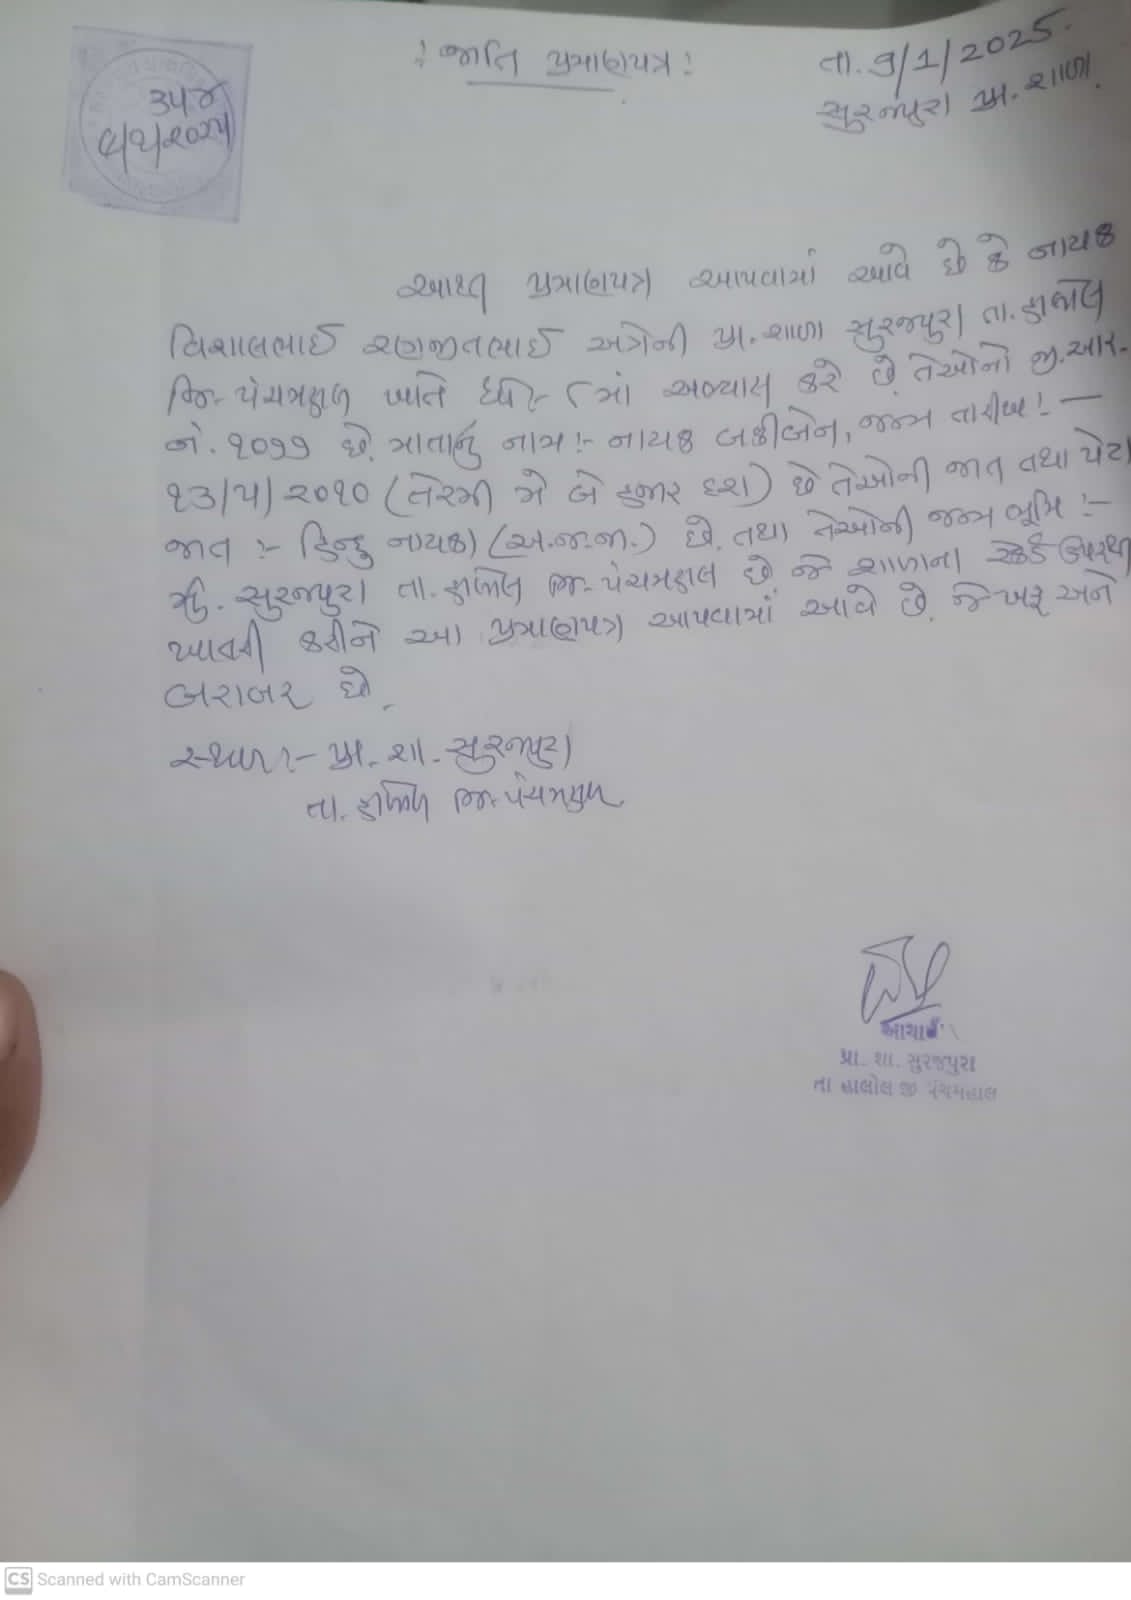 : જાતિ પ્રમાણપત્ર :
તા. 9/1/2025.
સુરજપુરા પ્રા. શાળા.
૩૫૪
આથી પ્રમાણપત્ર આપવામાં આવે છે કે નાયક
વિશાલભાઈ રણજીતભાઈ અત્રેની પ્રા. શાળા સુરજપુરા તા. હાલોલ
જિ- પંચમહાલ ખાતે ધો:- ૮માં અભ્યાસ કરે છે. તેઓનો જી.આર.
નં. ૧૦૧૧ છે. માતાનું નામ :- નાયક બકીબેન, જન્મ તારીખ :-
૧૩/૫/૨૦૧૦ (તેરમી મે બે હજાર દશ) છે તેઓની જાત તથા પેટા
જાત :- હિન્દુ નાયકા (અ.જ.જા.) છે. તથા તેઓની જન્મ ભૂમિ :-
મુ. સુરજપુરા તા. હાલોલ જિ- પંચમહાલ છે જે શાળાના રેકર્ડ ઉપરથી
ખાતરી કરીને આ પ્રમાણપત્ર આપવામાં આવે છે. જે ખરૂ અને
બરાબર છે.
સ્થળ :- પ્રા. શા. સુરજપુરા
તા. હાલોલ જિ- પંચમહાલ.
આચાર્ય
પ્રા. શા. સુરજપુરા
તા હાલોલ જી પંચમહાલ
CS Scanned with CamScanner